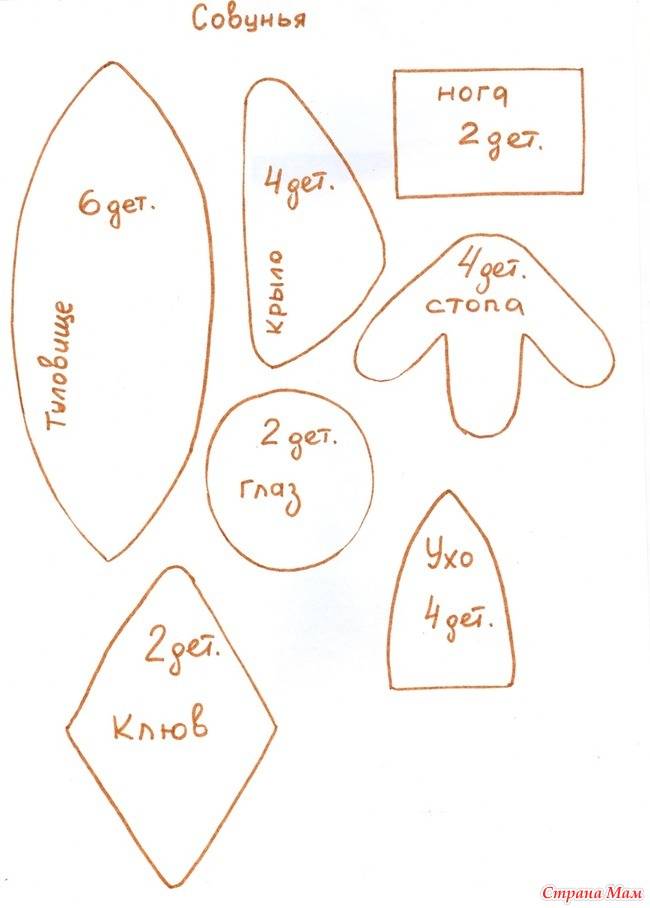 Совунья
6 дет.
Туловище
4 дет.
крыло
нога
2 дет.
4 дет.
стопа
2 дет.
глаз
Ухо
4 дет.
2 дет.
Клюв
Страна Мам